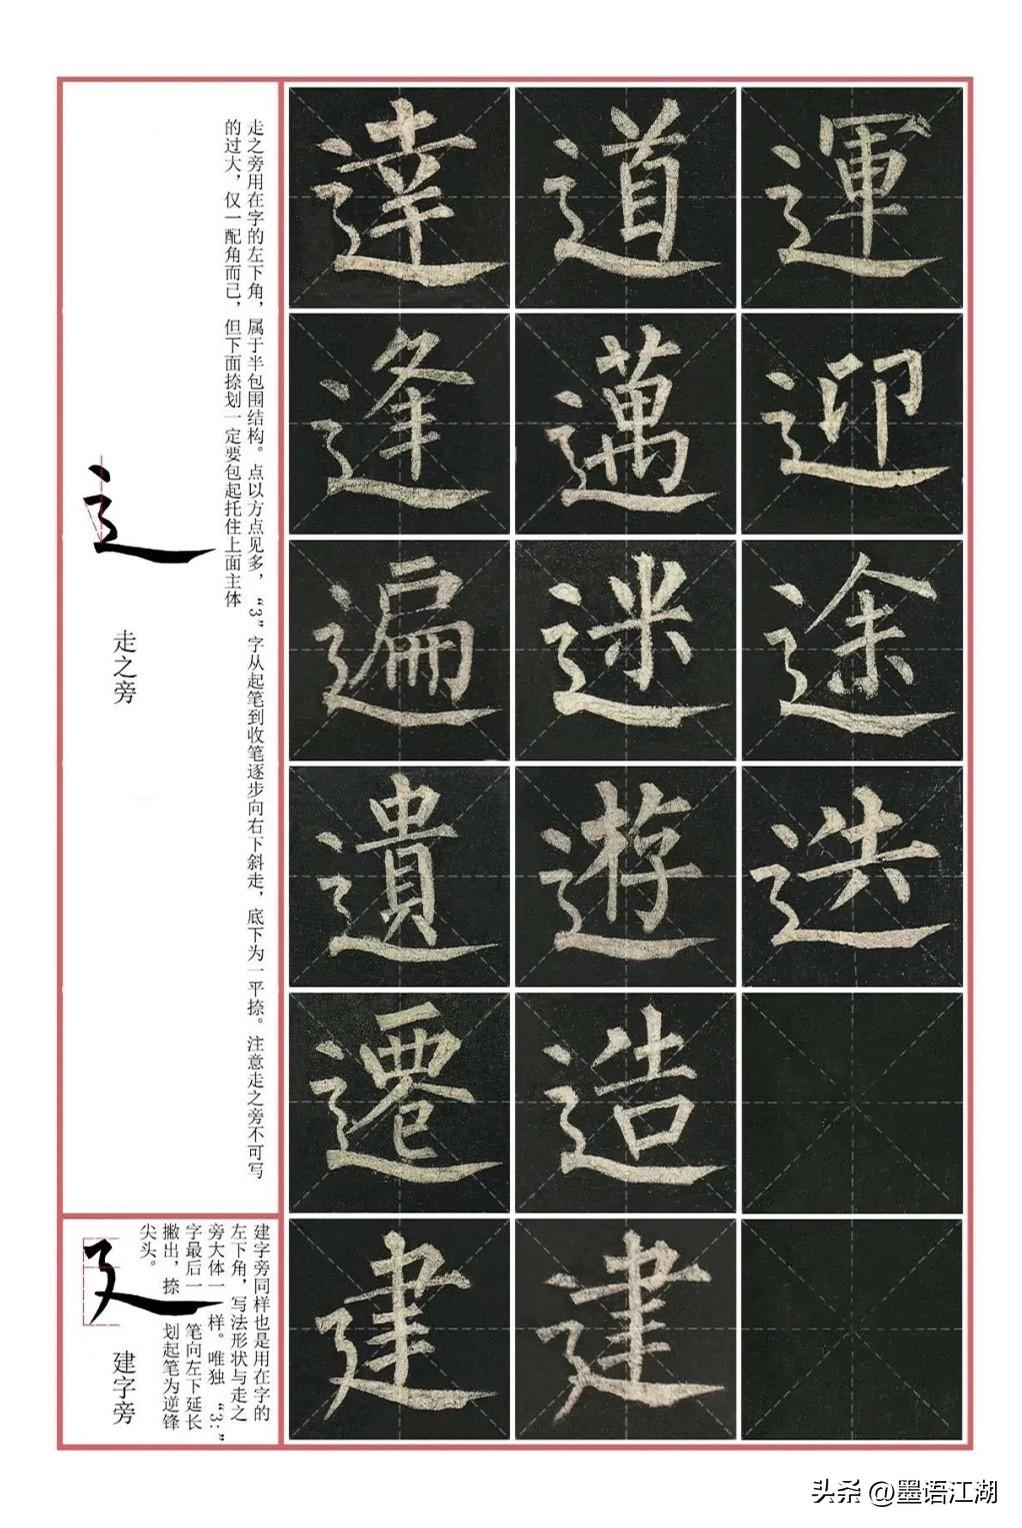 運
迎
途
迭
道
邁
迷
遊
造
建
達
逢
遍
遺
遷
建
走之旁用在字的左下角，属于半包围结构。点以方点见多，“3”字从起笔到收笔逐步向右下斜走，底下为一平捺。注意走之旁不可写
的过大，仅一配角而已，但下面捺划一定要包起托住上面主体
走之旁
建字旁同样也是用在字的
左下角，写法形状与走之
旁大体一样。唯独“3:”
字最后一笔向左下延长
撇出，捺划起笔为逆锋
尖头。
建字旁
头条 @墨语江湖